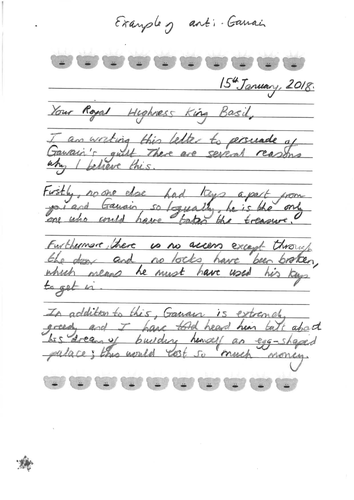 Example of anti-Gawain
15th January, 2018.
Your Royal Highness King Basil,
I am writing this letter to persuade of
Gawain's guilt There are several reasons
why I believe this.
Firstly, no one else had keys apart from
you and Gawain, so logically, he is the only
one who could have taken the treasure.
Furthermore, there is no access except through
the door and no locks have been broken,
which means he must have used his keys
to get in.
In addition to this, Gawain is extremely
greedy and I have told heard him talk about
his dream of building himself an egg-shaped
palace; this would cost so much money.